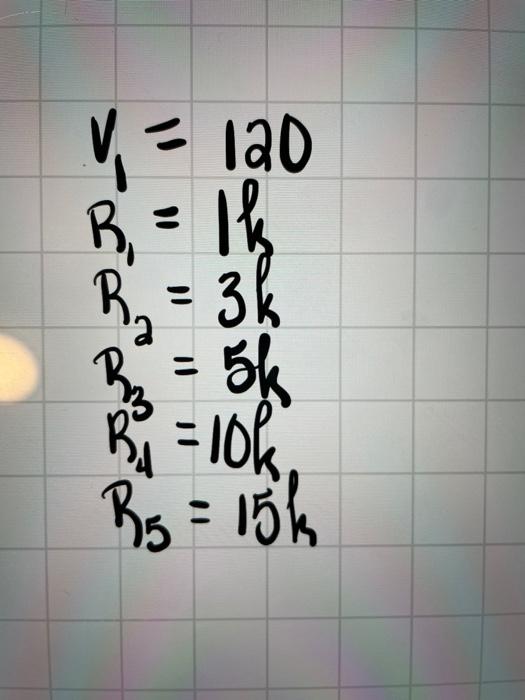 V₁ = 120
R₁ = 1k
R₂ = 3k
R₃ = 5k
R₄ = 10k
R₅ = 15k